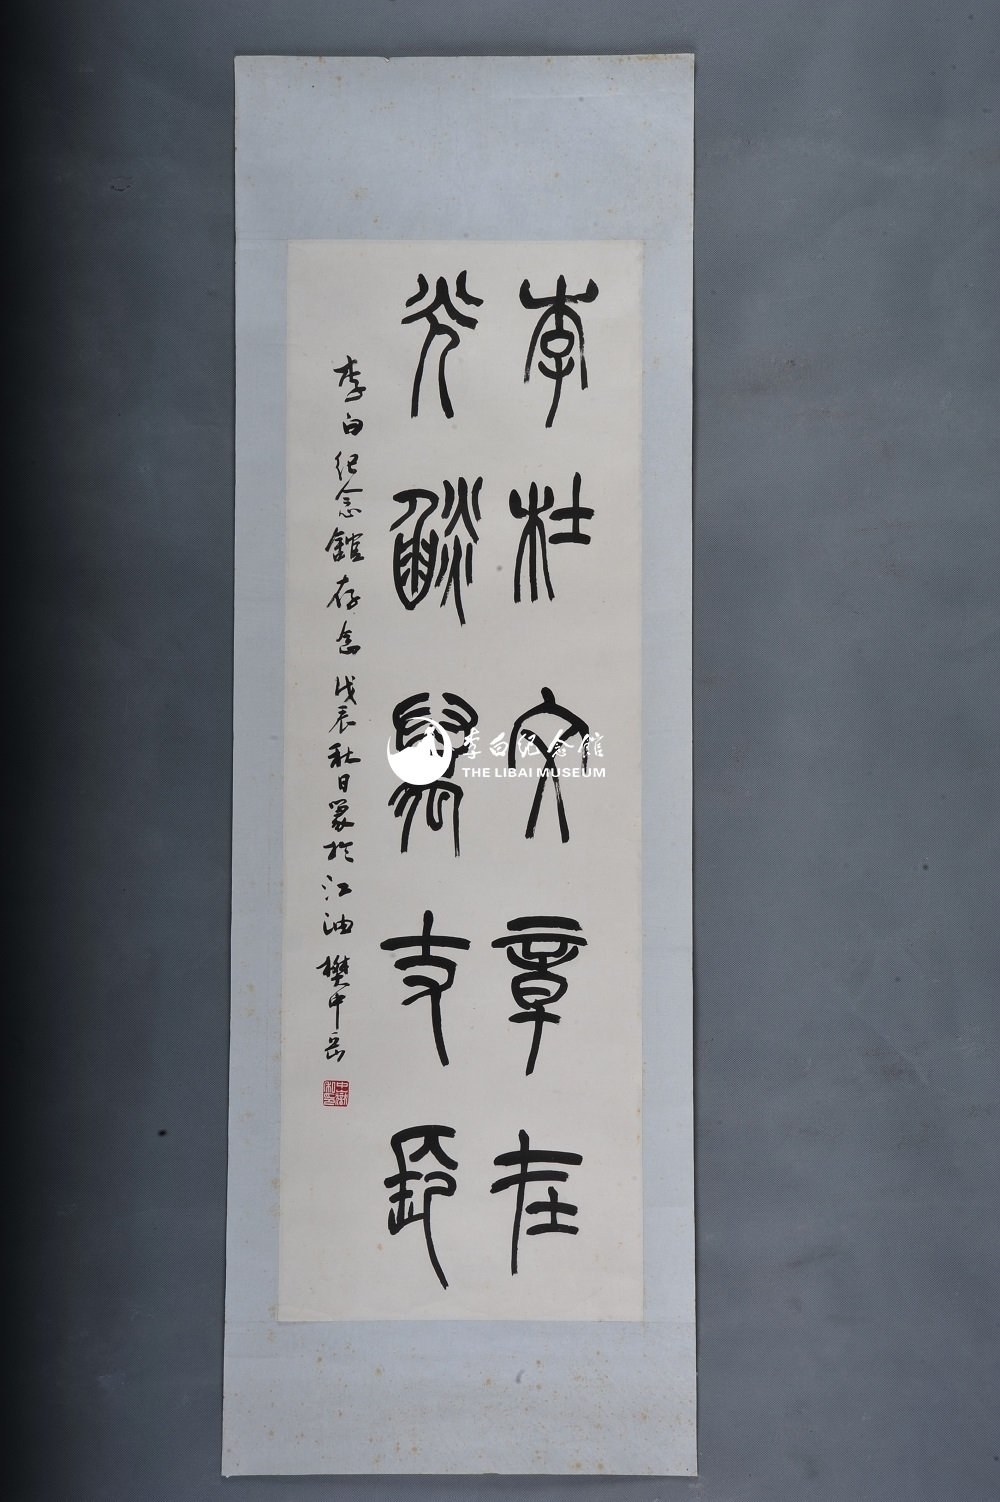 李杜文章在
光燄萬丈長
李白紀念館存念 戊辰秋日篆於江油 樊中岳
李白纪念館
THE LIBAI MUSEUM